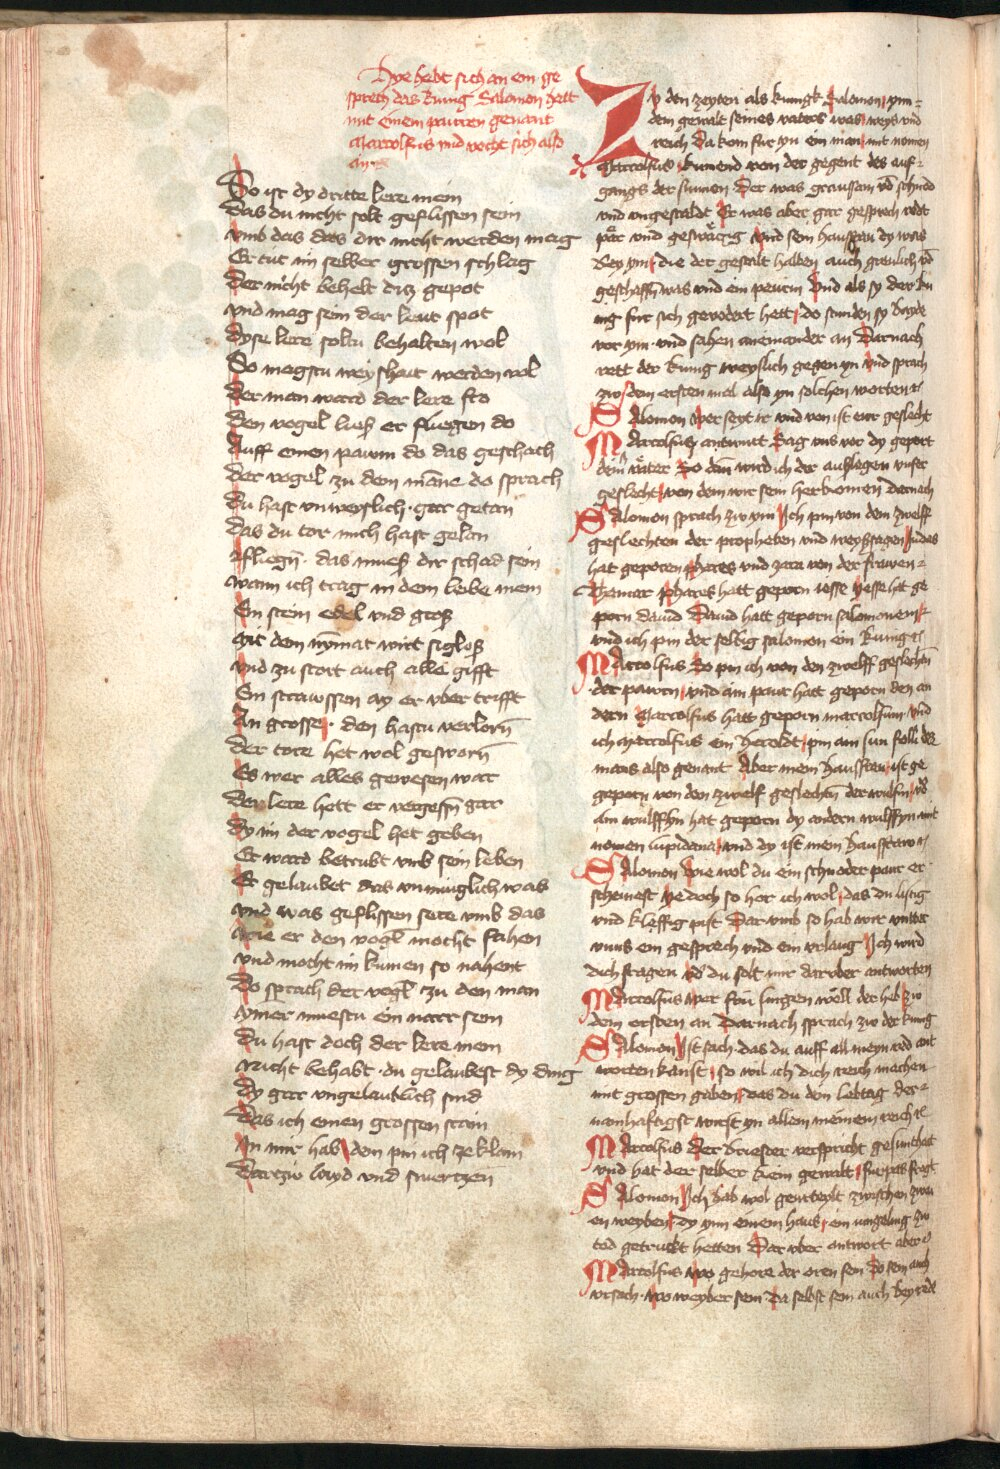 Hye hebt sich an ein ge
sprech das kunig Salomon hett
mit einem pauren genant
Marcolfus vnd vecht sich also
an
So ist dy dritte lere mein
Das du nicht solt geflissen sein
vmb das das dir nicht werden mag
Er tut im selber grossen schlag
Der nicht behelt ditz gepot
vnd mag sein der leut spot
Dyse lere soltu behalten wol
So magstu weyshait werden vol
Der man ward der lere fro
Den vogel lies er fliegen do
Auff einen pawm do das geschach
Der vogel zu dem manne do sprach
Du hast vnweyslich gar getan
Das du tor mich hast gelan
Fliegen das mues dir schad sein
wann ich trag in dem leibe mein
Ein stein edel vnd gros
Mit dem nymat wirt siglos
vnd zu stort auch alle gifft
Ein straussen ay er vber trifft
An grosse den hastu verlorn
Der tore het wol gesworn
Es wer alles gewesen war
Der lere hett er vergessen gar
Dy im der vogel het geben
Er ward betrubt vmb sein leben
Er gelaubet das vnmuglich was
vnd was geflissen sere vmb das
wie er den vogel mocht fahen
vnd mocht im kumen so nahent
Do sprach der vogel zu den man
ymer muestu ein narr sein
Du hast doch der lere mein
Nicht behabt du gelaubest dy ding
Dy gar vngelaublich sind
Das ich einen grossen stain
In mir hab den pin ich ze klain
Dartzu layd vnd smertzen
Zv den zeyten als kunigk Salomon ynn
dem gewalt seines vatters was weys vnd
reich Da kom fur yn ein man mit nomen
Marcolfus kumend von der gegent des auf
gangs der sunnen Der was grausam vnd schnod
vnd vngestaldt Er was aber gar gesprech redt
par vnd geswatzig vnd sein hausfrau dy was
bey ym die der gestalt halben auch greulich vnd
geschaffen was vnd ein peurin Vnd als sy der ku
nig fur sich gevodert hett do stunden sy bayde
vor ym vnd sahen aneinander an Darnach
rett der kunig weyslich gegen yn vnd sprach
zw dem ersten mal also yn solchen worten
Salomon wer seyt ir vnd von ist eur geslecht
Marcolfus antwurt Sag vns vor dy gepurt
deiner vater So dan wird ich der auslegen vnser
geslecht von dem wir sein herkomen darnach
Salomon sprach zw ym Ich pin von dem zwelff
geslechten der propheten vnd weyssagen Judas
hat geporen phares vnd zara von der frawen
Thamar phares hatt geporn iesse yesse hat ge
porn dauid Dauid hatt geporn salomonem
vnd ich pin der selbig salomon ein kunig
Marcolfus So pin ich von den zwelff geslechten
der pauren vnd ain paur hatt geporn den an
dern Marcolfus hatt geporn marcolfum vnd
ich Marcolfus ein heroldt pin ain sun
mans also genant Aber mein hausfrau ist ge
geporn von den zwelf geslechten der vnd
ain wulffyn hat geporn dy andern wulffyn mit
nomen lupidana vnd dy ist mein hausfraw
Salomon Wie wol du ein schnoder paur er
scheinest ye doch so hor ich wol das du listig
vnd kleffig pist Dar vmb so hab wir vnter
vnns ein gesprech vnd ein vrlaug Ich wird
dich fragen vnd du solt mir darvber antworten
Marcolfus wer fru singen well der heb zw
dem ersten an Darnach sprach zw der kunig
Salomon Ist sach das du auff all meyn red ant
worten kanst so wil ich dich reich machen
mit grossen gaben das du dein lebtag der
namhaftigst wirst yn allem meinem reich
Marcolfus Der briester verspricht gesunthait
vnd hat der selber kein gewalt furpas fragt
Salomon Ich hab wol geurteylt zwischen zwei
en weyben dy ynn einem haus ein zw
tod getruckt hetten Dar vber antwort aber
Marcolfus wo gehore der oren sein Do sein auch
vrsach wo weyber sein Da selbst sein auch bey rede